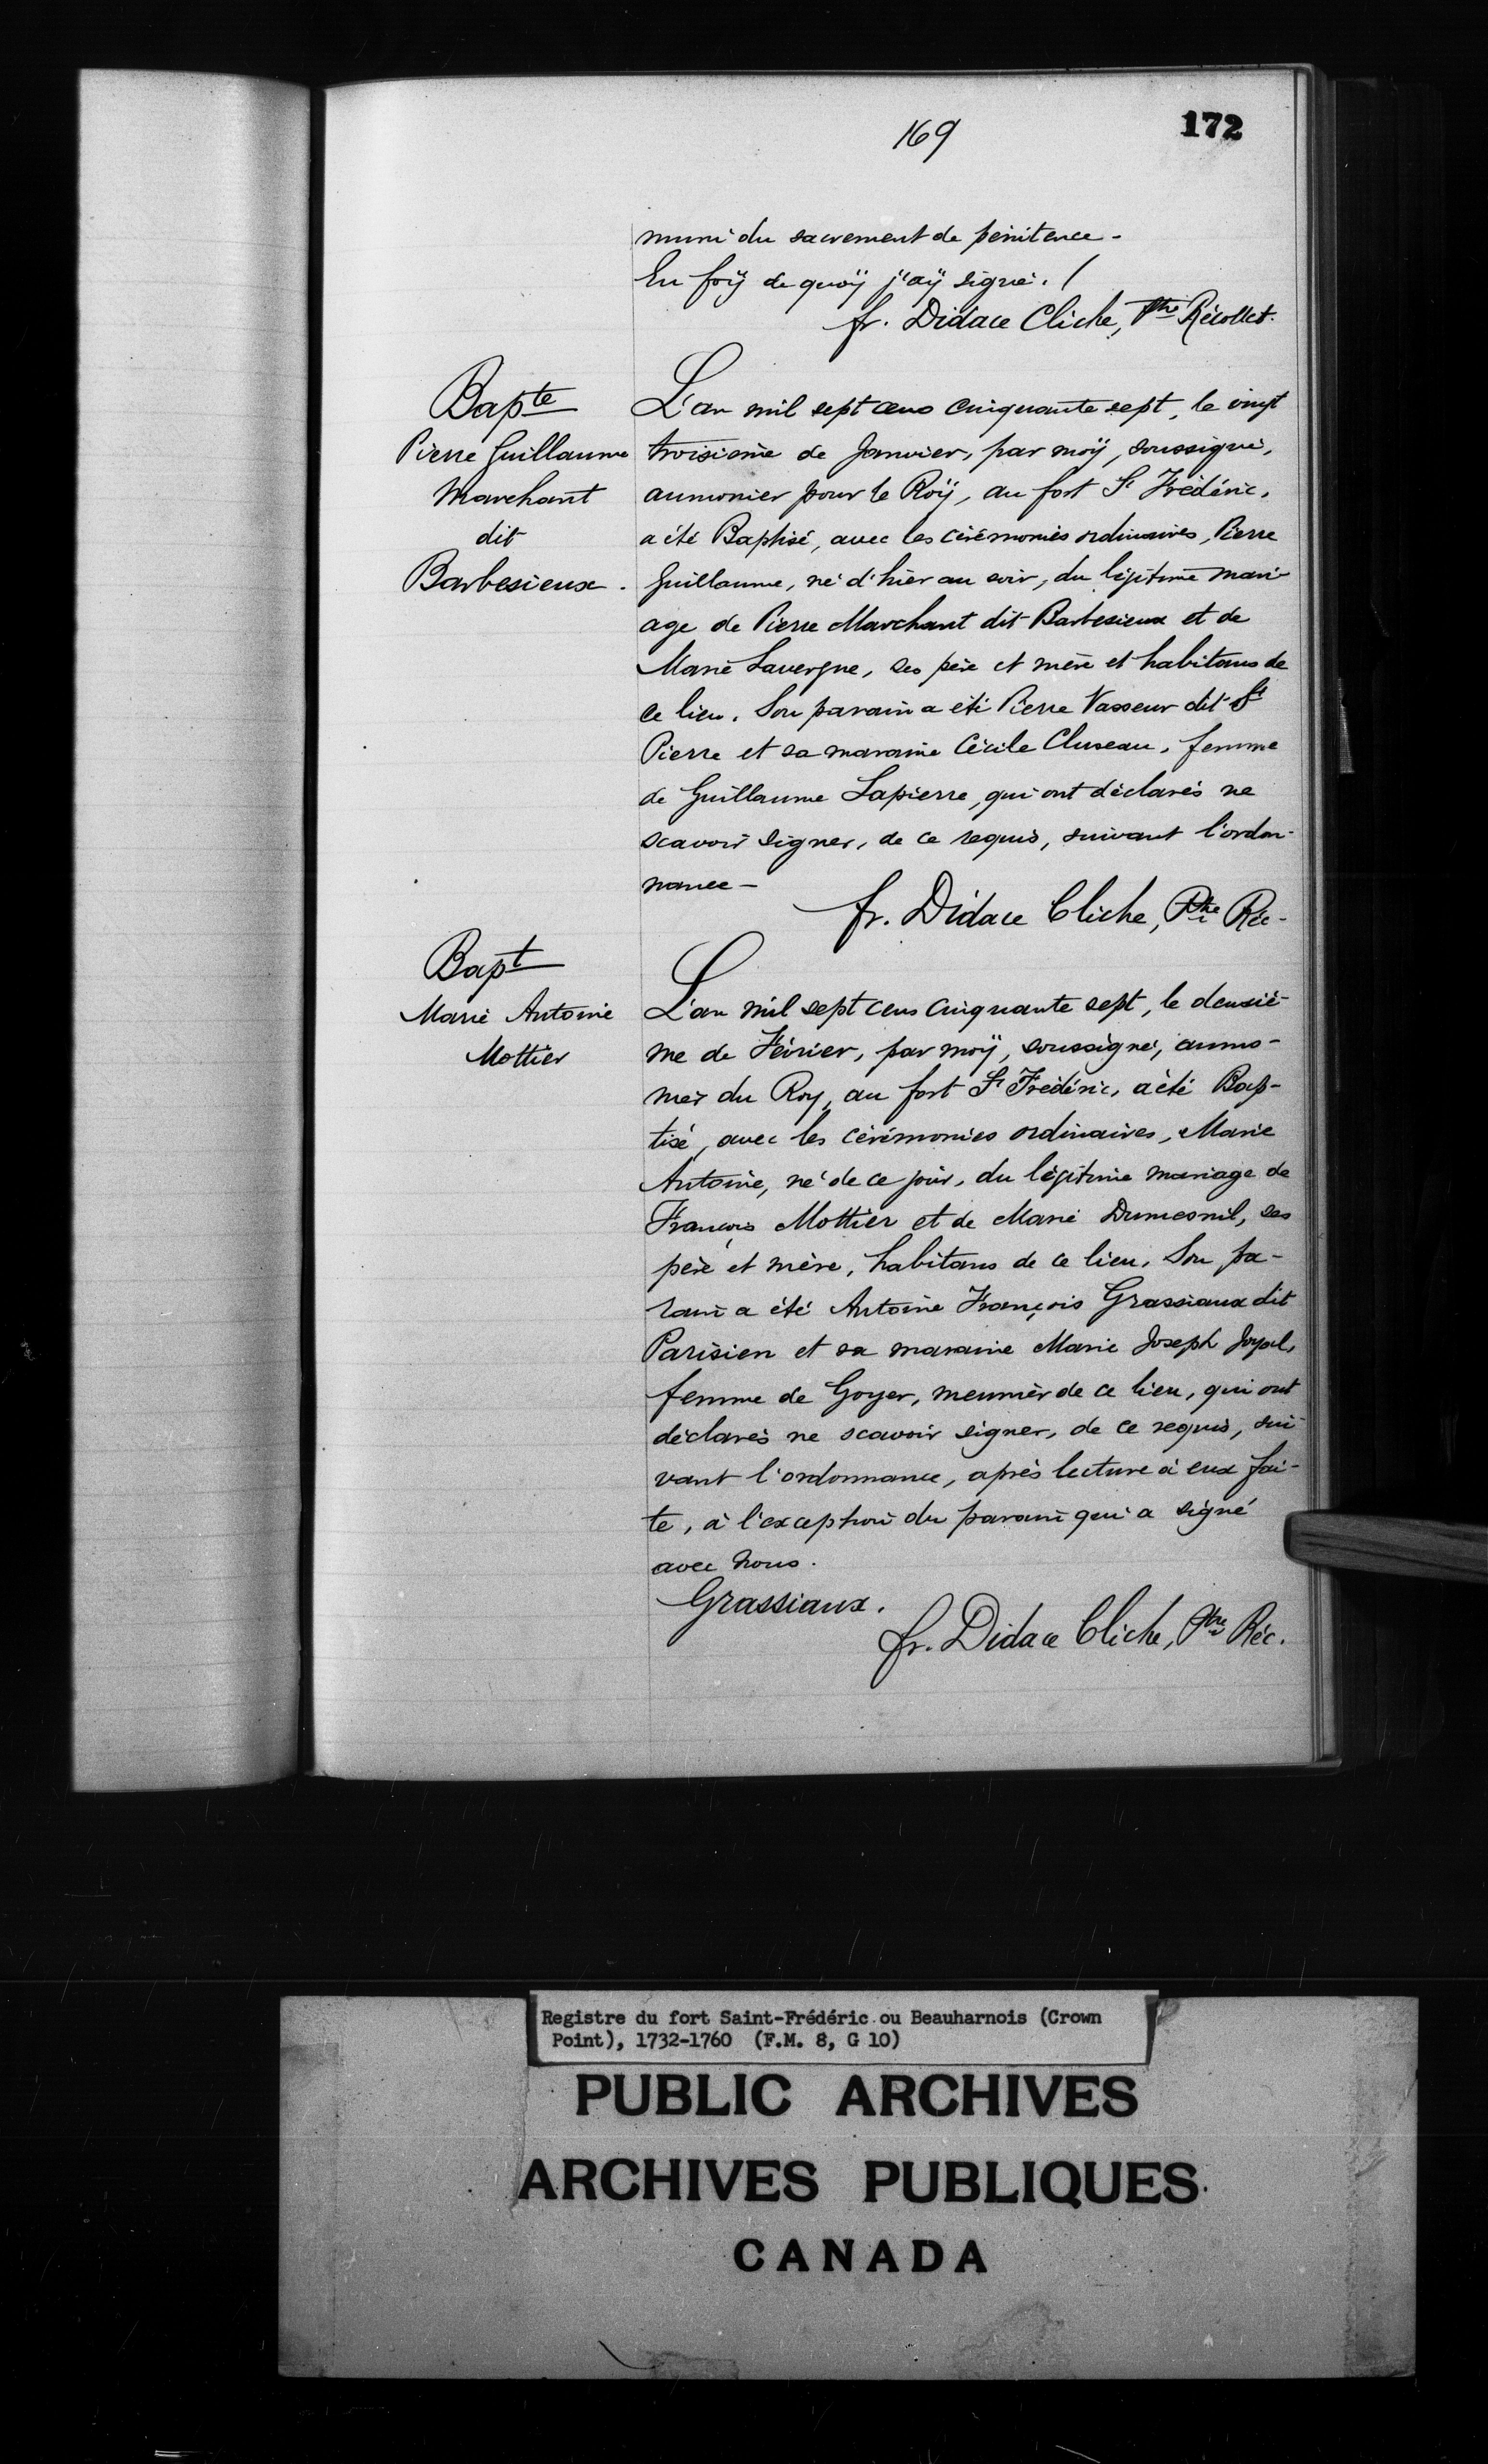 169
172
muni du sacrement de pénitence -
En foÿ de quoÿ j'aÿ signé. /
fr. Didace Cliche, Ptre Récollet.
Bapte
Pierre Guillaume
Marchant
dit
Barbesieux.
L'an mil sept cens cinquante sept, le vingt
troisieme de Janvier, par moÿ, soussigné,
aumonier pour le Roÿ, au fort St Frédéric,
a été Baptisé, avec les cérémonies ordinaires, Pierre
Guillaume, né d'hier au soir, du légitime mari-
age de Pierre Marchant dit Barbesieux et de
Marie Lavergne, ses père et mère et habitans de
ce lieu. Son parain a été Pierre Vasseur dit St
Pierre et sa maraine Cécile Cluseau, femme
de Guillaume Lapierre, qui ont déclarés ne
scavoir signer, de ce requis, suivant l'ordon-
nance -
fr. Didace Cliche, Ptre Réc -
Bapt
Marie Antoine
Mottier
L'an mil sept cens cinquante sept, le deuxié-
me de Février, par moÿ, soussigné, aumo-
nier du Roy, au fort St Frédéric, a été Bap-
tisé, avec les cérémonies ordinaires, Marie
Antoine, né de ce jour, du légitime mariage de
François Mottier et de Marie Dumesnil, ses
père et mère, habitans de ce lieu. Son pa-
rain a été Antoine François Grassiaux dit
Parisien et sa maraine Marie Joseph Joyal,
femme de Goyer, meunier de ce lieu, qui ont
déclarés ne scavoir signer, de ce requis, sui-
vant l'ordonnance, après lecture à eux fai-
te, à l'exception du parain qui a signé
avec nous.
Grassiaux.
fr. Didace Cliche, Ptre Réc.
Registre du fort Saint-Frédéric ou Beauharnois (Crown
Point), 1732-1760 (F.M. 8, G 10)
PUBLIC ARCHIVES
ARCHIVES PUBLIQUES
CANADA